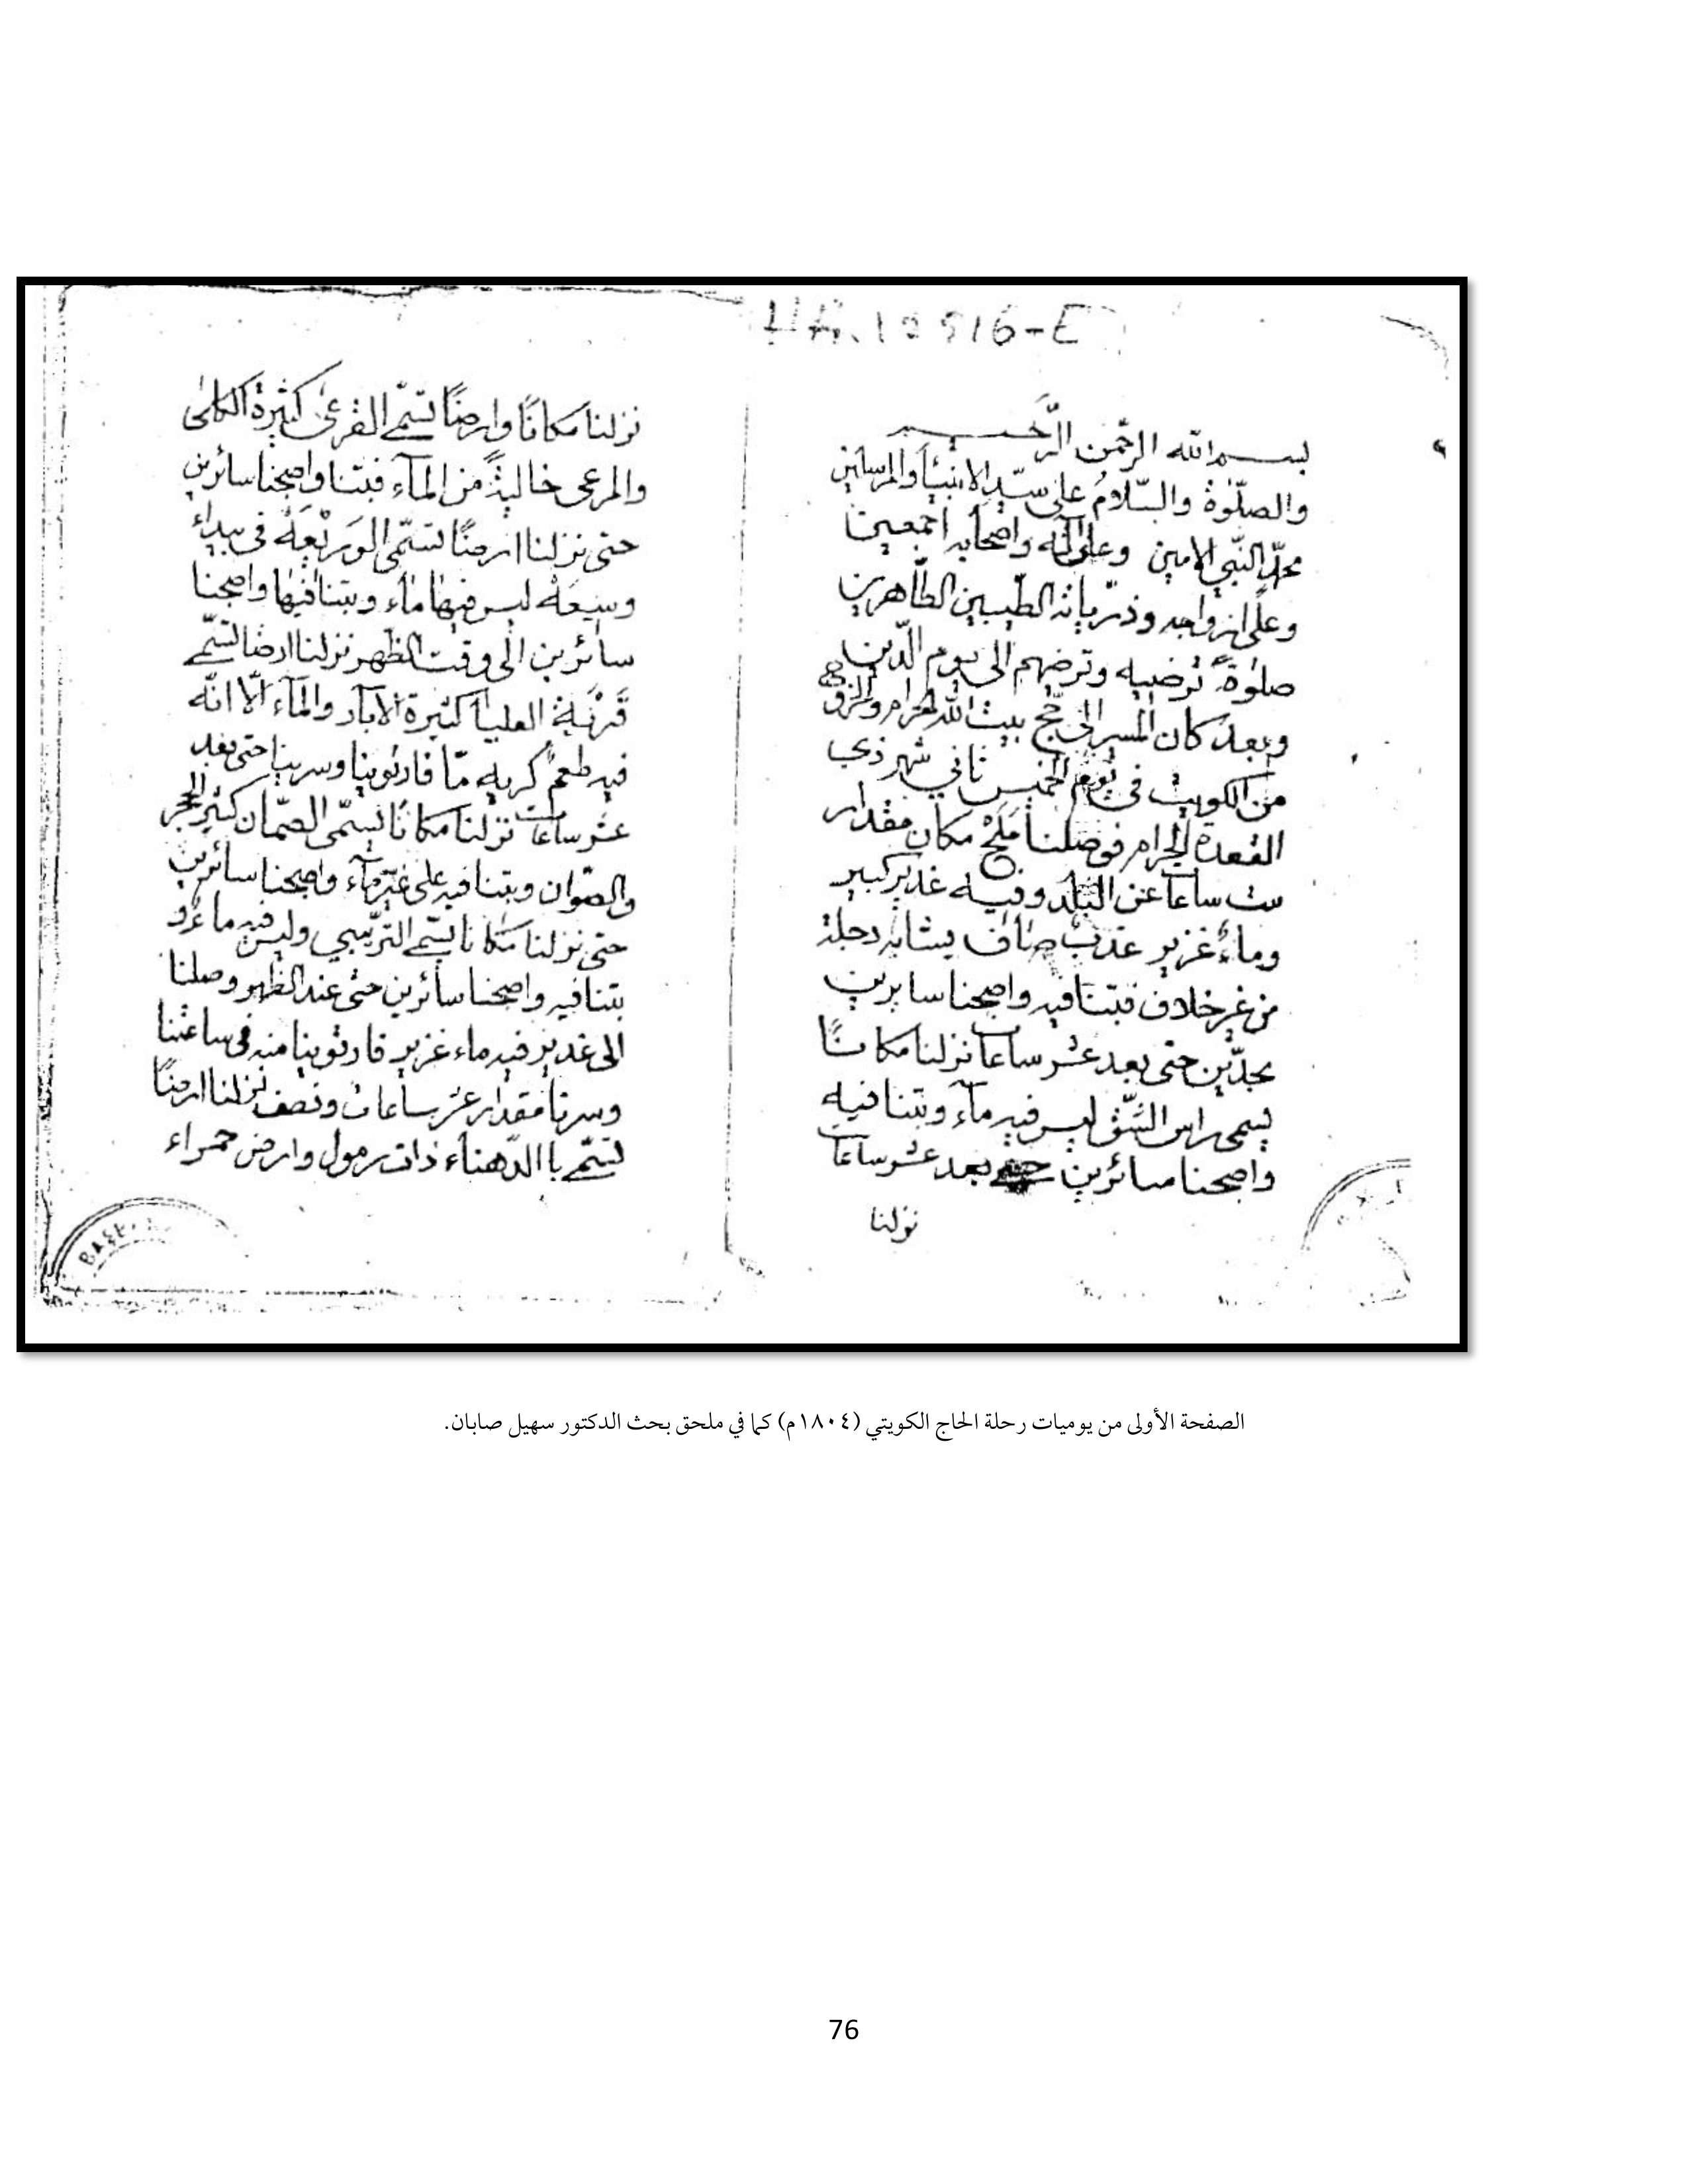 HH.13516-E
بسم الله الرحمن الرحيم
والصلوة والسّلام على سيّد الانبيآ والمرسلين
محمّد النّبي الامين وعلى آله واصحابه اجمعين
وعلى ازواجه وذرّياته الطّيبين الطّاهرين
صلوةً ترضيه وترضهم الى يوم الدّين
وبعد كان المسير الى حجّ بيت الله الحرام
من الكويت في يوم الخميس ثاني شهر ذي
القعدة الحرام فوصلنا مَلَحْ مكان مقدار
ست ساعات عن البلد وفيه غدير كبير
وماءٌ غزير عذب صاف يشابه دجلة
من غير خلاف فبتنا فيه واصبحنا سايرين
مجدّين حتى بعد عشر ساعات نزلنا مكانًا
يسمى راس الشّق ليس فيه مآء وبتنا فيه
واصبحنا سائرين بعد عشر ساعات
نزلنا
نزلنا مكانًا وارضًا تسمّى القرعى كثيرة الكلى
والمرعى خاليةً من المآء فبتنا واصبحنا سائرين
حتى نزلنا ارضًا تسمّى الوَرَيْعَهْ في بيداء
وسيعَهْ ليس فيها مآء وبتنا فيها واصبحنا
سائرين الى وقت الظهر نزلنا ارضا تسمّى
قَرْيَة العليا كثيرة الآبار والمآء الّا انّه
فيه طعمٌ كريه ممّا فارتوينا وسرينا حتى بعد
عشر ساعات نزلنا مكانًا يسمّى الصّمّان كثير الحجر
والصّوّان وبتنا فيه على غير مآء واصبحنا سائرين
حتى نزلنا مكانا يسمّى التريبي وليس فيه ماءٌ و
بتنا فيه واصبحنا سائرين حتى عند الظهر وصلنا
الى غدير فيه ماء غزير فارتوينا منه في ساعتنا
وسرنا مقدار عشر ساعات ونصف نزلنا ارضًا
تسمّى با الدّهناء ذات رمول وارض حمراء
الصفحة الأولى من يوميات رحلة الحاج الكويتي (١٨٠٤م) كما في ملحق بحث الدكتور سهيل صابان.
76